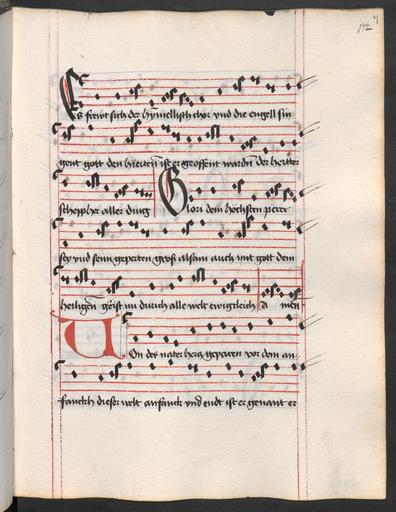 Es frewt sich der hymellisch chor vnd die engell sin
gent gott den hierten ist er geoffent wardn der herter
scheppher aller ding Glori dem höchsten peter
sey vnd seim geparten groß alsam auch mit gott dem
heiligen geist im durch alle welt ewigkleich A men
Von des vater hercz geparen vor dem an
fanckh dieser welt anfanck vnd endt ist er genant er